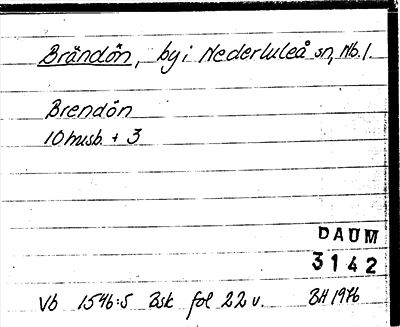 Brändön, by i Nederluleå sn, Nb.l.
Brendön
10 husb. + 3
DAUM
3142
Vb 1546:5 Bsk fol 22 v. BH 1976